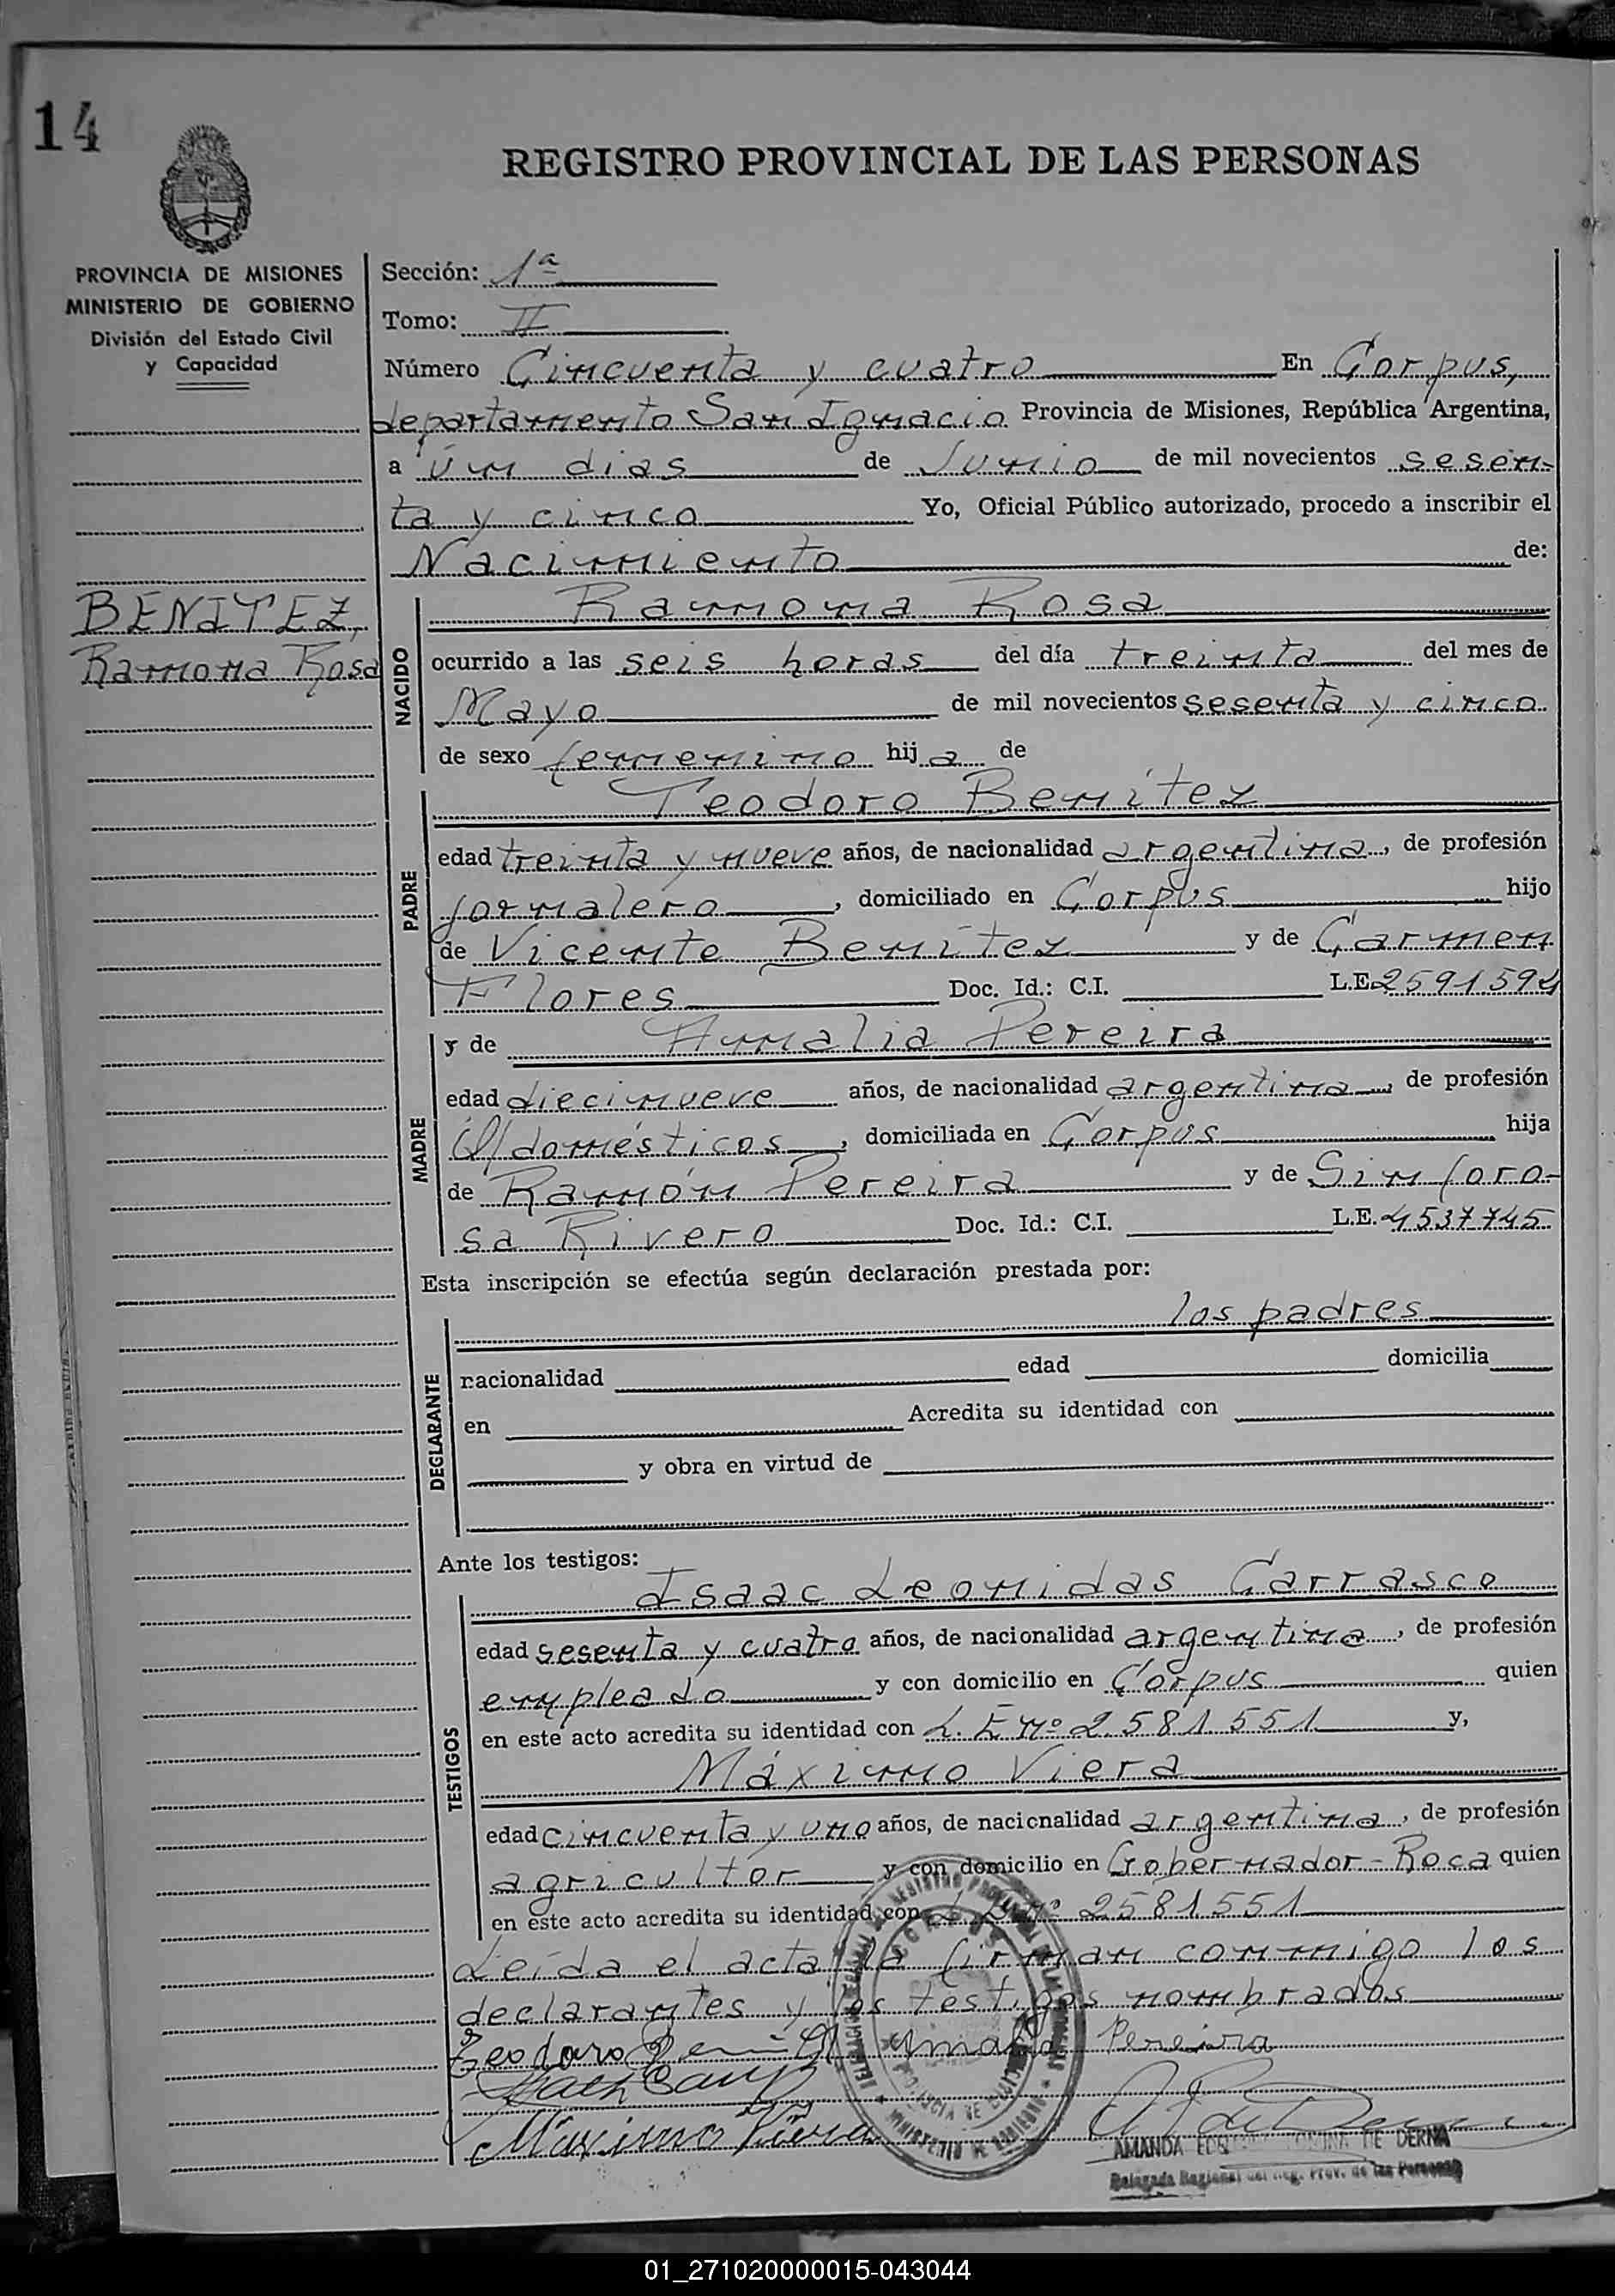 14
REGISTRO PROVINCIAL DE LAS PERSONAS
PROVINCIA DE MISIONES
MINISTERIO DE GOBIERNO
División del Estado Civil
y Capacidad
BENITEZ,
Ramona Rosa
Sección: 1ª
Tomo: II
Número Cincuenta y cuatro En Corpus,
departamento San Ignacio Provincia de Misiones, República Argentina,
a ún dias de Junio de mil novecientos sesen-
ta y cinco Yo, Oficial Público autorizado, procedo a inscribir el
Nacimiento de:
NACIDO
Ramona Rosa
ocurrido a las seis horas del día treinta del mes de
Mayo de mil novecientos sesenta y cinco
de sexo femenino hija de
PADRE
Teodoro Benítez
edad treinta y nueve años, de nacionalidad argentina, de profesión
jornalero, domiciliado en Corpus hijo
de Vicente Benítez y de Carmen
Flores Doc. Id.: C.I. L.E. 2591594
MADRE
y de Amalia Pereira
edad diecinueve años, de nacionalidad argentina, de profesión
Q/domésticos, domiciliada en Corpus hija
de Ramón Pereira y de Sinforo-
sa Rivero Doc. Id.: C.I. L.E. 4537745
Esta inscripción se efectúa según declaración prestada por:
DECLARANTE
los padres
nacionalidad edad domicilia
en Acredita su identidad con
y obra en virtud de
Ante los testigos:
TESTIGOS
Isaac Leonidas Carrasco
edad sesenta y cuatro años, de nacionalidad argentina, de profesión
empleado y con domicilio en Corpus quien
en este acto acredita su identidad con L. E nº 2.581.551 y,
Máximo Viera
edad cincuenta y uno años, de nacionalidad argentina, de profesión
agricultor y con domicilio en Gobernador-Roca quien
en este acto acredita su identidad con L. E nº 2581551
Leída el acta la firman conmigo los
declarantes y los testigos nombrados
Teodoro Amalia Pereira
Máximo Viera
AMANDA DE DERNA
Delegada Regional del Reg. Prov. de las Personas
01_271020000015-043044